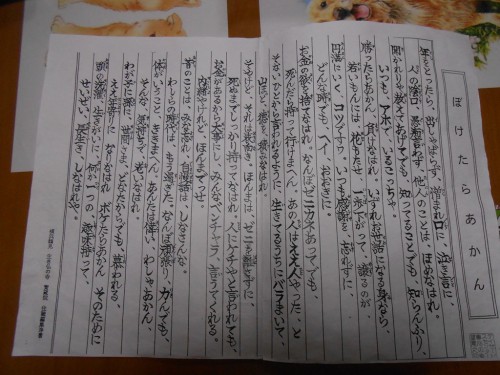 ぼけたらあかん
年をとったら、出しゃばらず、憎まれ口に、泣き言に、
人の陰口、愚痴言わず、他人のことは、ほめなはれ。
聞かれりゃ教えてあげてでも、知ってることでも、知らんふり、
いつも、アホで、いるこっちゃ。
勝ったらあかん、負けなはれ、いずれお世話になる身なら、
若いもんには、花もたせ、一歩下がって、譲るのが、
円満にいく、コツですわ。いつも感謝を、忘れずに、
どんな時でも、ヘイ、おおきに。
お金の欲を、捨てなはれ。なんぼゼニカネあってでも、
死んだら持って行けまへん。あの人はええ人やった、と
そないひとから言われるように、生きてるうちにバラまいて、
山ほど、徳を、積みなはれ。
そやけど、それは表向き。ほんまは、ゼニを離さずに、
死ぬまでしっかり持ってなはれ。人にケチやと言われても、
お金があるから大事にし、みんなベンチャラ、言うてくれる。
内緒やけれど、ほんまでっせ。
昔のことは、みな忘れ、自慢話は、しなさんな。
わしらの時代は、もう過ぎた。なんぼ頑張り、力んでも、
体がいうこと、ききまへん。あんたは偉い、わしゃあかん、
そんな、気持ちで、おりなはれ。
わが子に孫に、世間さま、どなたからでも、慕われる、
ええ年寄りに、なりなはれ。ボケたらあかん、そのために
頭の洗濯、生きがいに、何か一つの、趣味持って、
せいぜい、長生き、しなはれや。